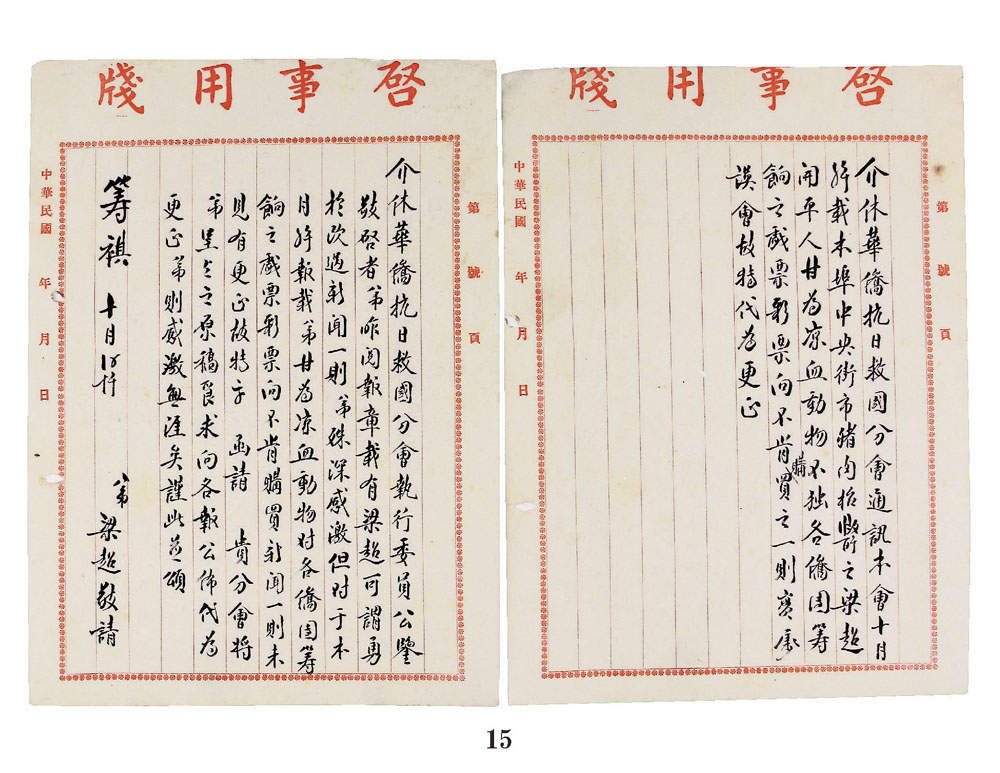 啓事用牋
第 號 頁
介休華僑抗日救國分會執行委員公鑒
敬啓者弟昨閱報章載有梁超可謂勇
於改過新聞一則弟殊深感激但对于本
月 報載弟甘为凉血動物对各僑团筹
餉之戲票彩票向不肯購買新聞一則未
見有更正故特予 函請 貴分會將
弟呈上之原稿 求向各報公佈代为
更正弟則感激無涯矣謹此並頌
筹祺 十月
弟梁超敬請
中華民國 年 月 日
啓事用牋
第 號 頁
介休華僑抗日救國分會通訊本會十月
載本埠中央街市豬肉枱 之梁超
開平人甘为凉血動物不独各僑团筹
餉之戲票彩票向不肯購買之一則实屬
誤會故特代为更正
中華民國 年 月 日
15